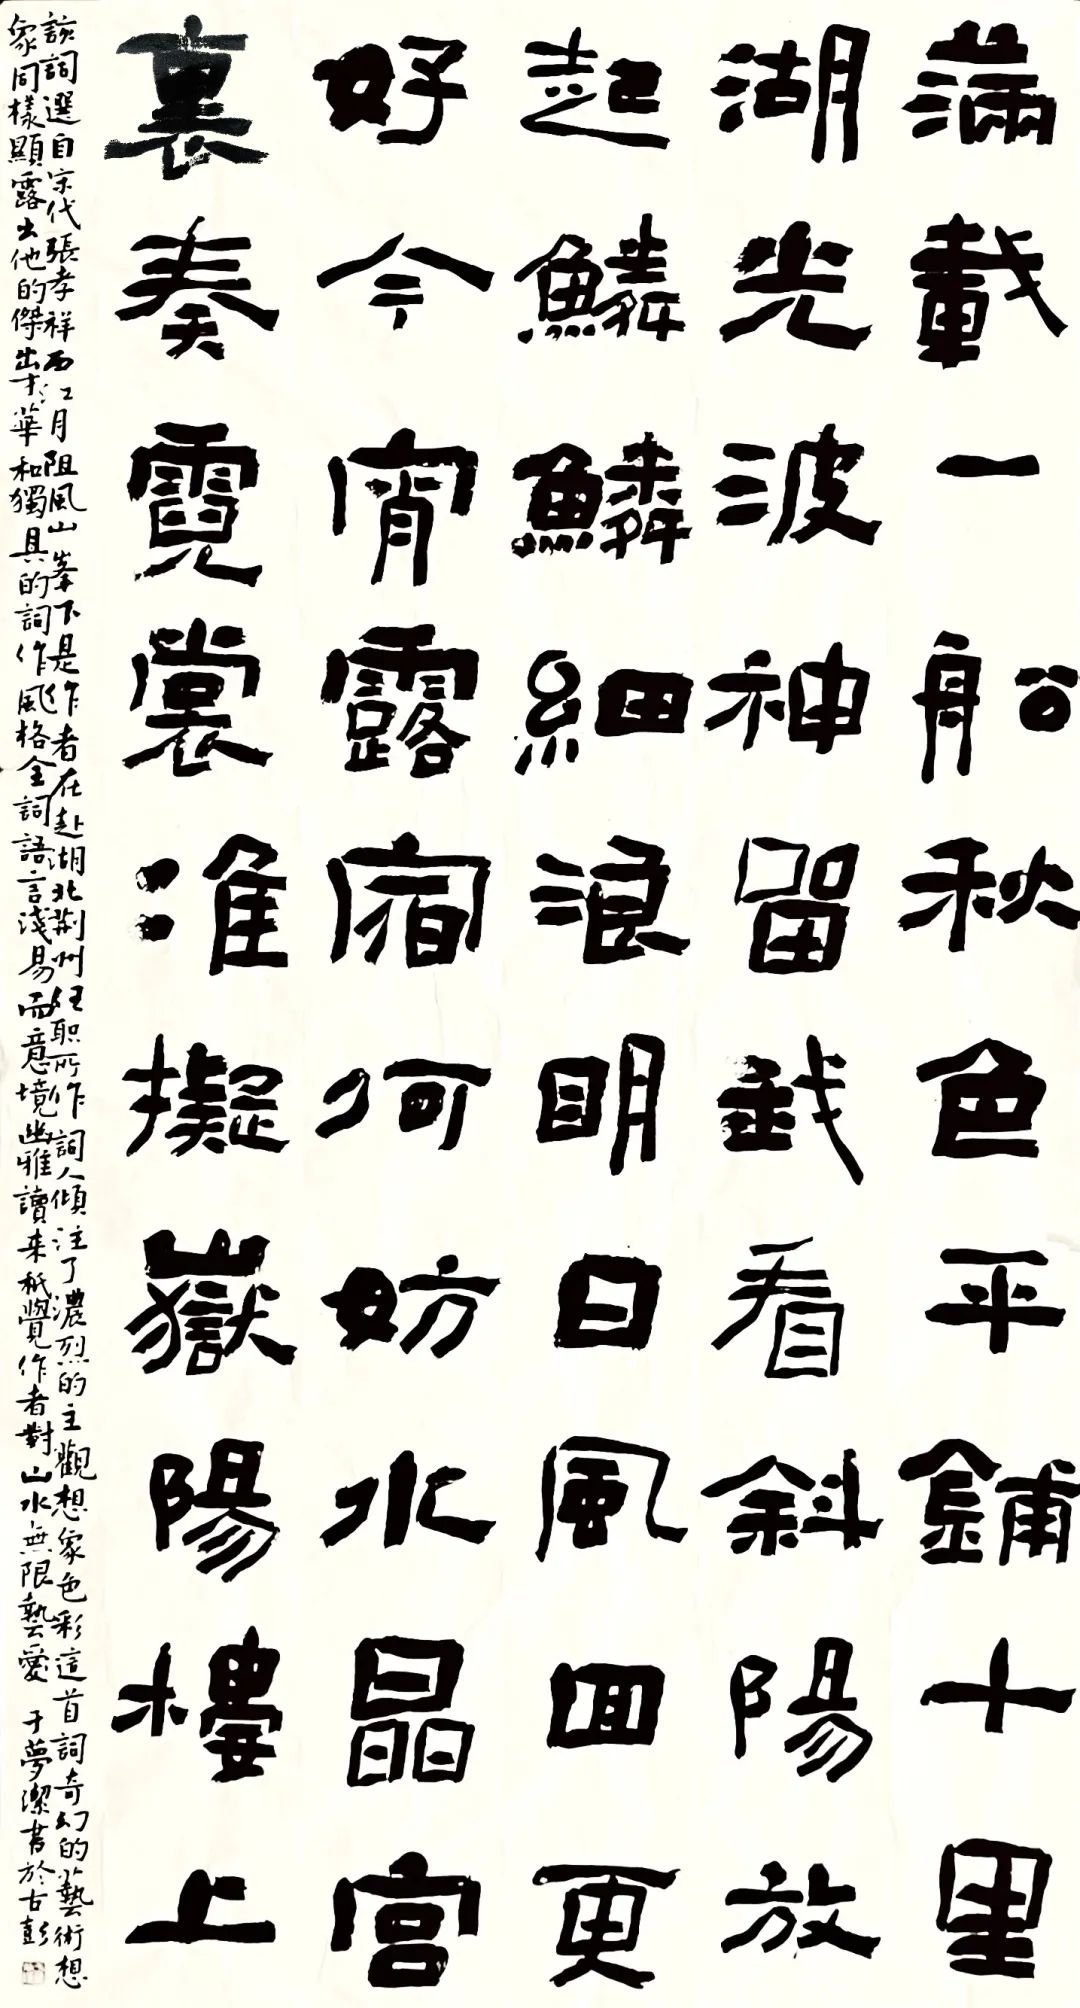 滿載一船秋色平鋪十里
湖光波神留我看斜陽放
起鱗鱗細浪明日風回更
好今宵露宿何妨水晶宮
裏奏霓裳准擬嶽陽樓上
該詞選自宋代張孝祥西江月阻風山峯下是作者在赴湖北荆州任职所作詞人傾注了濃烈的主觀想象色彩這首詞奇幻的藝術想
象同樣顯露出他的傑出才華和獨具的詞作風格全詞語言淺易而意境幽雅讀来秖覺作者對山水無限熱愛 于夢潔書於古彭